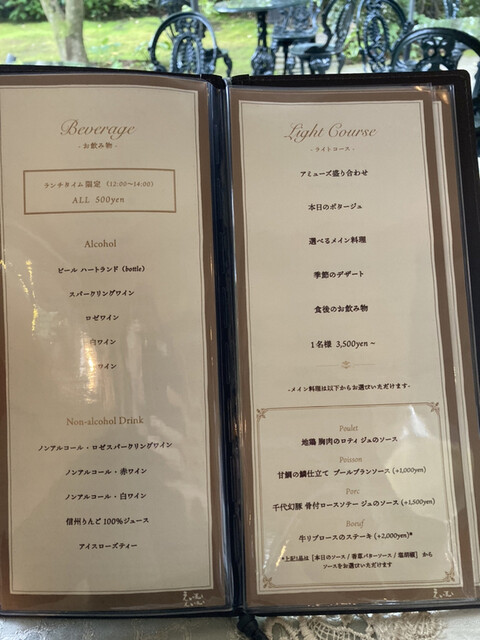 Beverage
- お飲み物 -
ランチタイム限定 (12:00〜14:00)
ALL 500yen
Alcohol
ビール ハートランド (bottle)
スパークリングワイン
ロゼワイン
白ワイン
ワイン
Non-alcohol Drink
ノンアルコール・ロゼスパークリングワイン
ノンアルコール・赤ワイン
ノンアルコール・白ワイン
信州りんご100%ジュース
アイスローズティー
Light Course
- ライトコース -
アミューズ盛り合わせ
本日のポタージュ
選べるメイン料理
季節のデザート
食後のお飲み物
1名様 3,500yen ~
-メイン料理は以下からお選びいただけます-
Poulet
地鶏 胸肉のロティ ジュのソース
Poisson
甘鯛の鱗仕立て ブールブランソース (+1,000yen)
Porc
千代幻豚 骨付ロースソテー ジュのソース (+1,500yen)
Boeuf
牛リブロースのステーキ (+2,000yen)*
*上記1品は [本日のソース / 香草バターソース / 塩胡椒] から
ソースをお選びいただけます